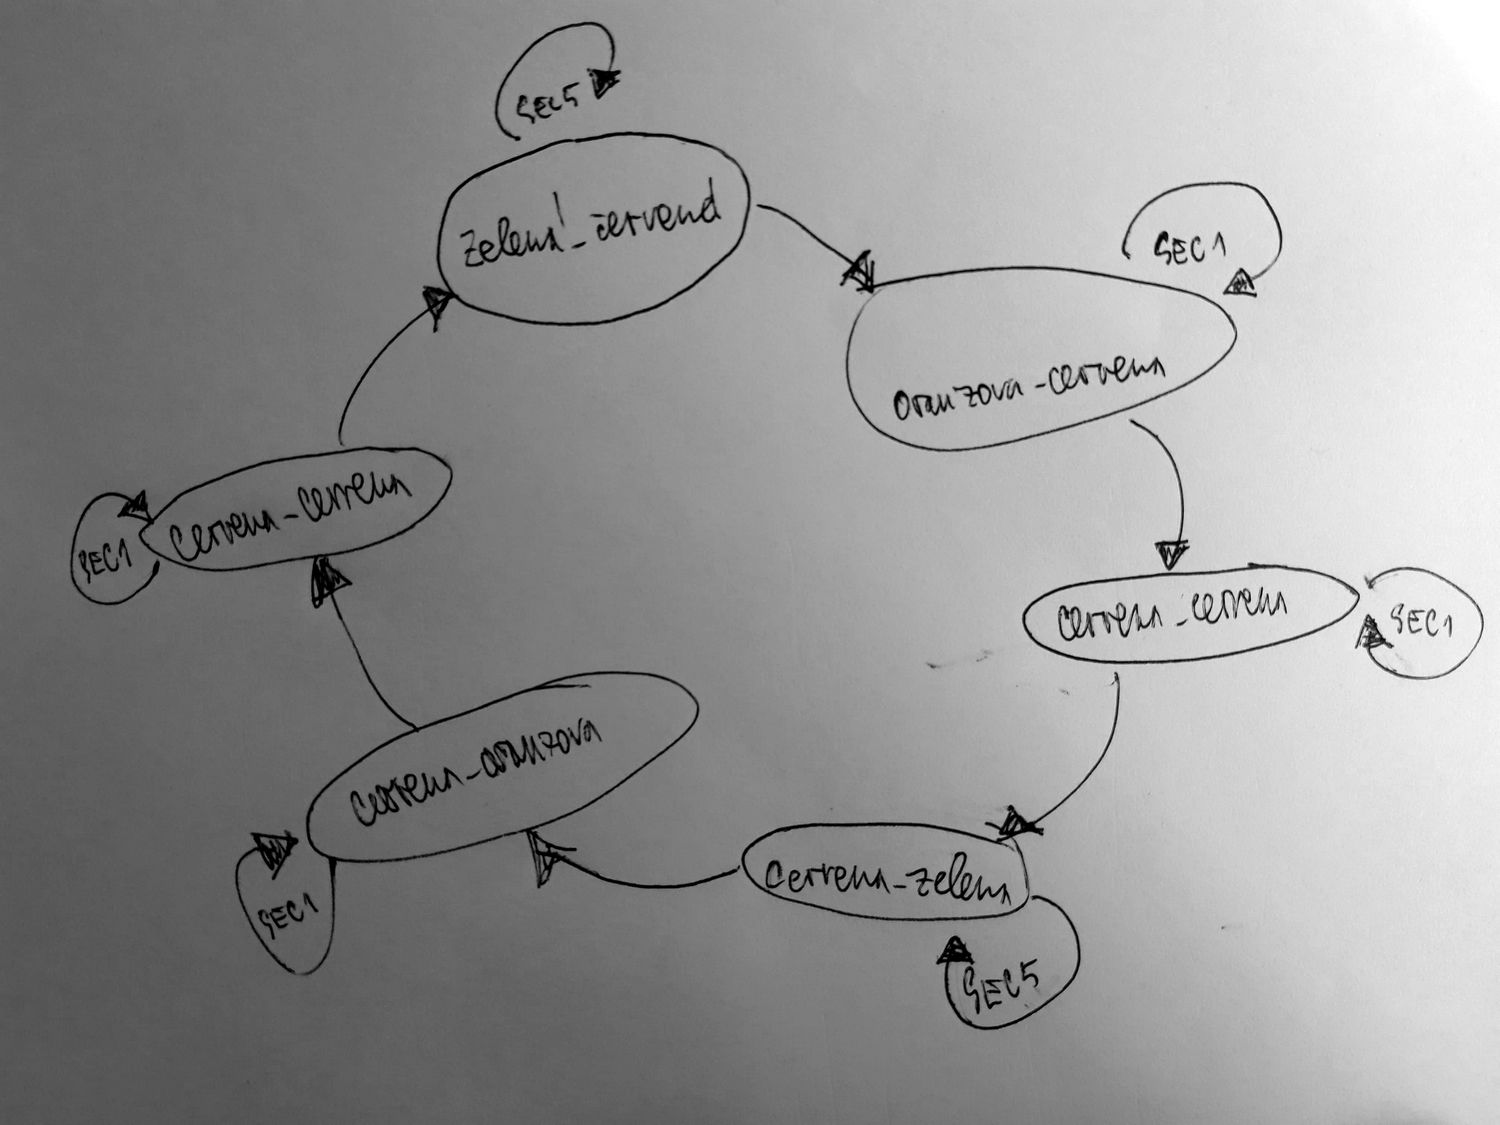 SEC5
zelená_červená
SEC1
oranzova-cervena
cervena_cervena
SEC1
cervena-zelena
SEC5
cervena-oranzova
SEC1
cervena-cervena
SEC1